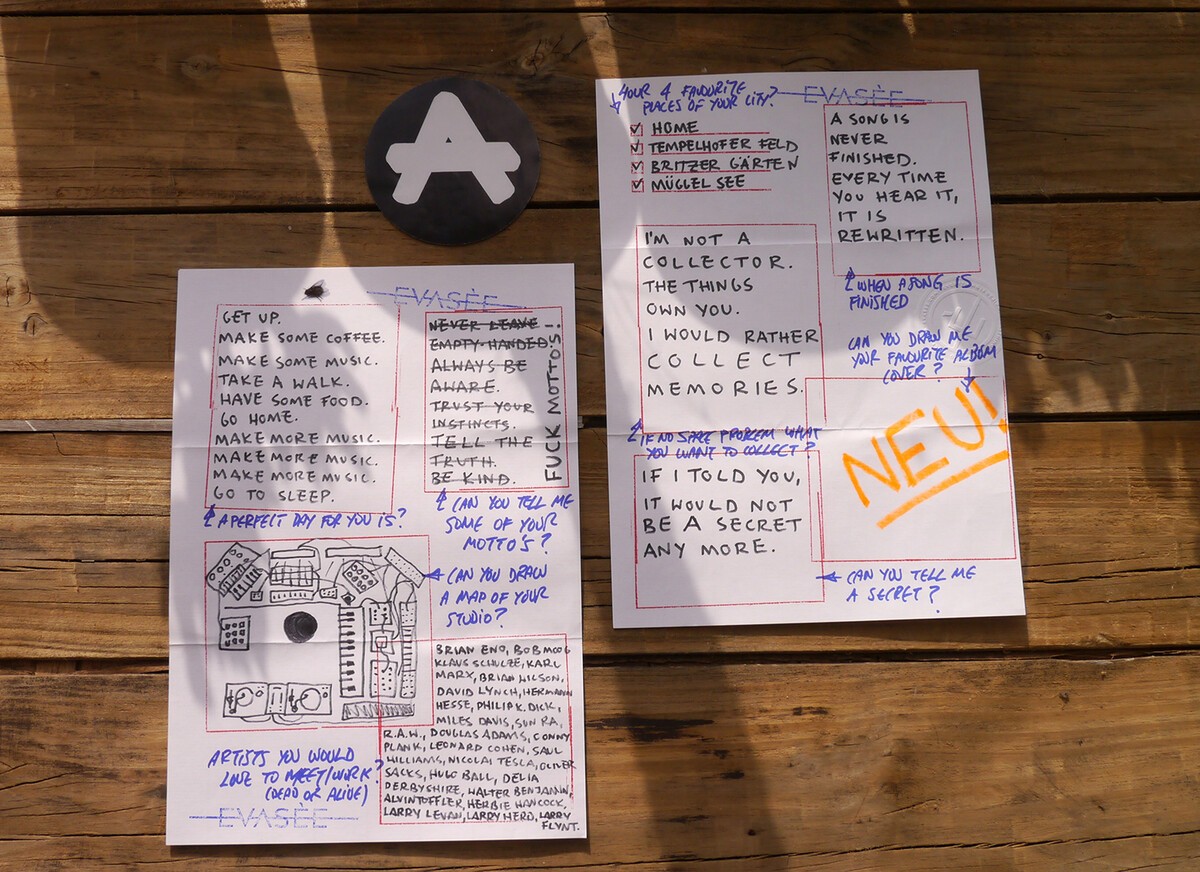 A
EVASÉE
GET UP.
MAKE SOME COFFEE.
MAKE SOME MUSIC.
TAKE A WALK.
HAVE SOME FOOD.
GO HOME.
MAKE MORE MUSIC.
MAKE MORE MUSIC.
MAKE MORE MUSIC.
GO TO SLEEP.
A PERFECT DAY FOR YOU IS?
NEVER LEAVE
EMPTY-HANDED
ALWAYS BE
AWARE.
TRUST YOUR
INSTINCTS.
TELL THE
TRUTH.
BE KIND.
FUCK MOTTO'S!
CAN YOU TELL ME
SOME OF YOUR
MOTTO'S?
CAN YOU DRAW
A MAP OF YOUR
STUDIO?
BRIAN ENO, BOB MOOG
KLAUS SCHULZE, KARL
MARX, BRIAN WILSON,
DAVID LYNCH, HERMANN
HESSE, PHILIP K. DICK,
MILES DAVIS, SUN RA,
R.A.W., DOUGLAS ADAMS, CONNY
PLANK, LEONARD COHEN, SAUL
WILLIAMS, NICOLAI TESLA, OLIVER
SACKS, HUGO BALL, DELIA
DERBYSHIRE, WALTER BENJAMIN,
ALVIN TOFFLER, HERBIE HANCOCK,
LARRY LEVAN, LARRY HERD, LARRY
FLYNT.
ARTISTS YOU WOULD
LOVE TO MEET/WORK?
(DEAD OR ALIVE)
EVASÉE
YOUR 4 FAVOURITE
PLACES OF YOUR CITY?
EVASÉE
HOME
TEMPELHOFER FELD
BRITZER GÄRTEN
MÜGGEL SEE
A SONG IS
NEVER
FINISHED.
EVERY TIME
YOU HEAR IT,
IT IS
REWRITTEN.
WHEN A SONG IS
FINISHED
I'M NOT A
COLLECTOR.
THE THINGS
OWN YOU.
I WOULD RATHER
COLLECT
MEMORIES.
IF NO SPACE PROBLEM WHAT
YOU WANT TO COLLECT?
CAN YOU DRAW ME
YOUR FAVOURITE ALBUM
COVER?
NEU!
IF I TOLD YOU,
IT WOULD NOT
BE A SECRET
ANY MORE.
CAN YOU TELL ME
A SECRET?